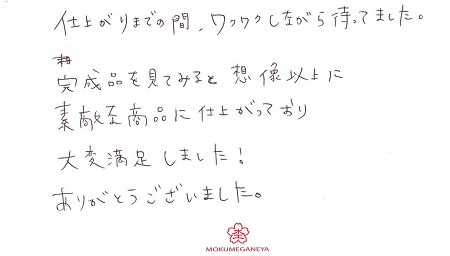 仕上がりまでの間、ワクワクしながら待ってました。
完成品を見てみると想像以上に
素敵な商品に仕上がっており
大変満足しました!
ありがとうございました。
MOKUMEGANEYA